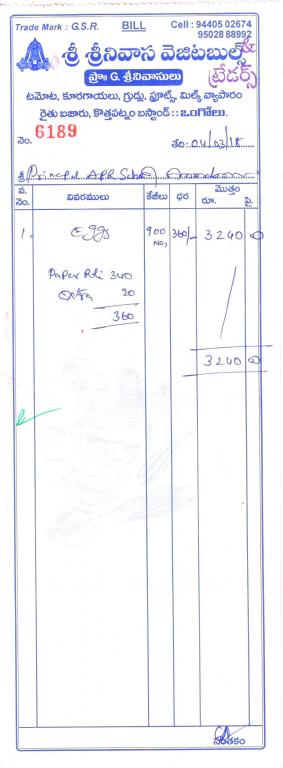 Trade Mark : G.S.R. BILL Cell : 94405 02674
95028 88992
శ్రీ శ్రీనివాస వెజిటబుల్స్ &
ప్రొః G. శ్రీనివాసులు ట్రేడర్స్
టమోట, కూరగాయలు, గ్రుడ్లు, ఫ్రూట్స్, మిల్క్ వ్యాపారం
రైతు బజారు, కొత్తపట్నం బస్టాండ్ :: ఒంగోలు.
నెం. 6189 తేది: 04/03/18
శ్రీ Principal APR School
వ. నెం. వివరములు కేజీలు ధర మొత్తం రూ. పై.
1. Eggs 900 Nos 360/- 3240 00
Paper Rate 340
Extra 20
360
3240 00
సంతకం